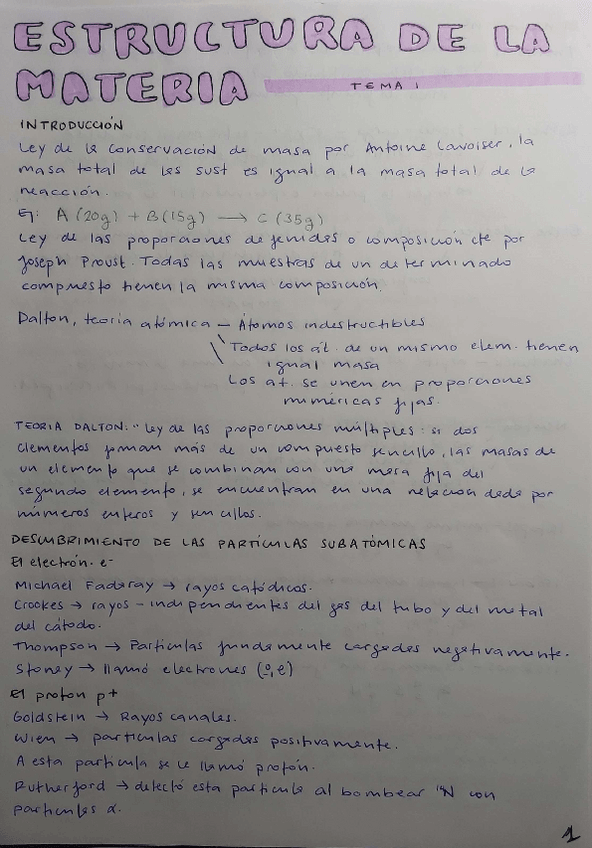 ESTRUCTURA DE LA
MATERIA TEMA 1
INTRODUCCIÓN
Ley de la conservación de masa por Antoine Lavoiser, la
masa total de las sust es igual a la masa total de la
reacción.
Ej: A (20g) + B (15g) → C (35g)
Ley de las proporciones definidas o composición cte por
Joseph Proust. Todas las muestras de un determinado
compuesto tienen la misma composición.
Dalton, teoría atómica – Átomos indestructibles
Todos los át. de un mismo elem. tienen
igual masa
Los at. se unen en proporciones
numéricas fijas.
TEORIA DALTON: "Ley de las proporciones múltiples: si dos
elementos forman más de un compuesto sencillo, las masas de
un elemento que se combinan con una masa fija del
segundo elemento, se encuentran en una relación dada por
números enteros y sencillos.
DESCUBRIMIENTO DE LAS PARTÍCULAS SUBATÓMICAS
El electrón. e-
Michael Fadaray → rayos catódicos.
Crookes → rayos – independientes del gas del tubo y del metal
del cátodo.
Thompson → Partículas fundamente cargadas negativamente.
Stoney → llamó electrones
El proton p+
Goldstein → Rayos canales.
Wien → partículas cargadas positivamente.
A esta partícula se le llamó protón.
Rutherford → detectó esta partícula al bombear N con
partículas α.
1